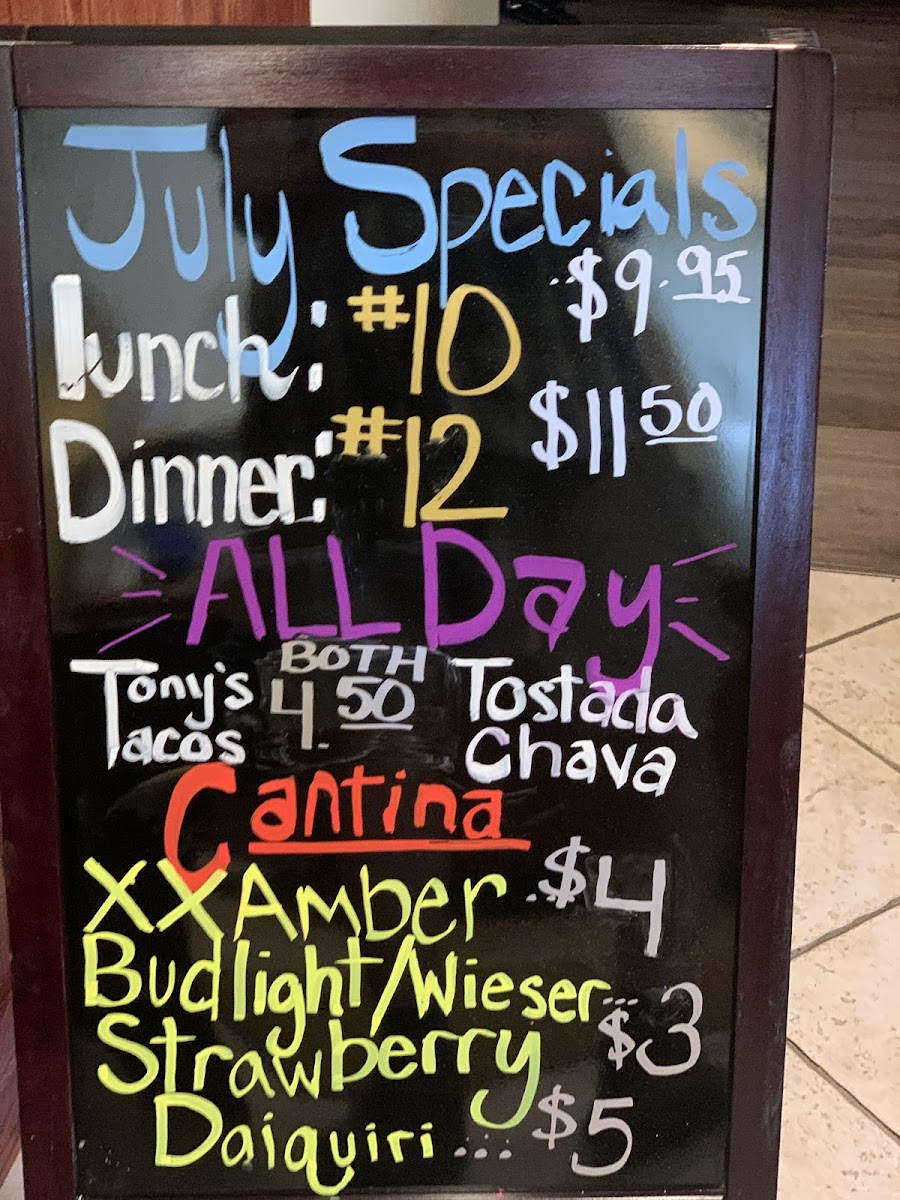 July Specials
Lunch: #10 $9.95
Dinner: #12 $11 50
ALL Day
BOTH
Tony's 4.50 Tostada
Tacos Chava
Cantina
XX Amber ..$4
Budlight/Wieser... $3
Strawberry
Daiquiri ... $5